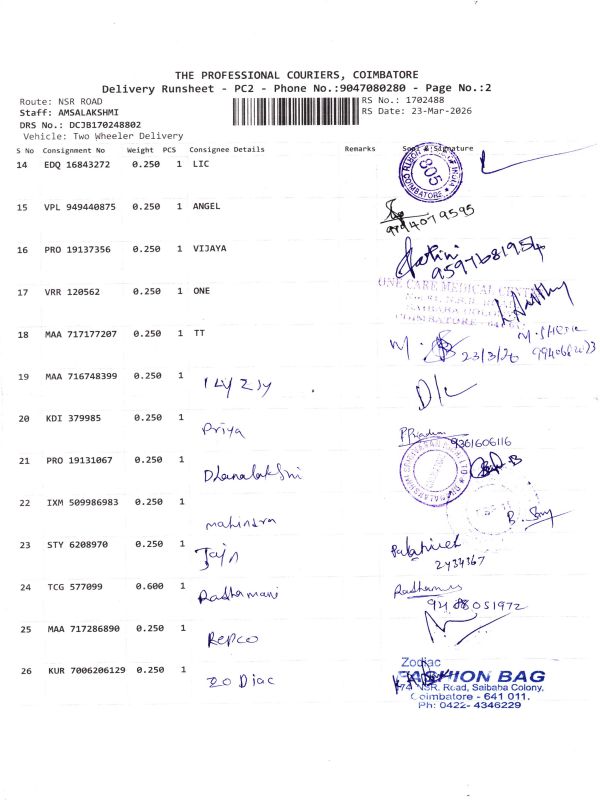 THE PROFESSIONAL COURIERS, COIMBATORE
Delivery Runsheet - PC2 - Phone No.:9047080280 - Page No.:2
Route: NSR ROAD
RS No.: 1702488
Staff: AMSALAKSHMI
RS Date: 23-Mar-2026
DRS No.: DCJB170248802
Vehicle: Two Wheeler Delivery
S No Consignment No Weight PCS Consignee Details Remarks Seal & Signature
14 EDQ 16843272 0.250 1 LIC
805
COIMBATORE
15 VPL 949440875 0.250 1 ANGEL
9794079595
16 PRO 19137356 0.250 1 VIJAYA
9597681954
17 VRR 120562 0.250 1 ONE
ONE CARE MEDICAL CENTRE
18 MAA 717177207 0.250 1 TT
23/3/26
19 MAA 716748399 0.250 1
D/L
20 KDI 379985 0.250 1 Priya
9361606116
21 PRO 19131067 0.250 1 Dhanalakshmi
22 IXM 509986983 0.250 1 mahindra
23 STY 6208970 0.250 1 Jain
2434367
24 TCG 577099 0.600 1 Radhamani
Radhamani
9488051972
25 MAA 717286890 0.250 1 Repco
26 KUR 7006206129 0.250 1 Zodiac
Zodiac
FASHION BAG
74 NSR. Road, Saibaba Colony,
Coimbatore - 641 011.
Ph: 0422- 4346229